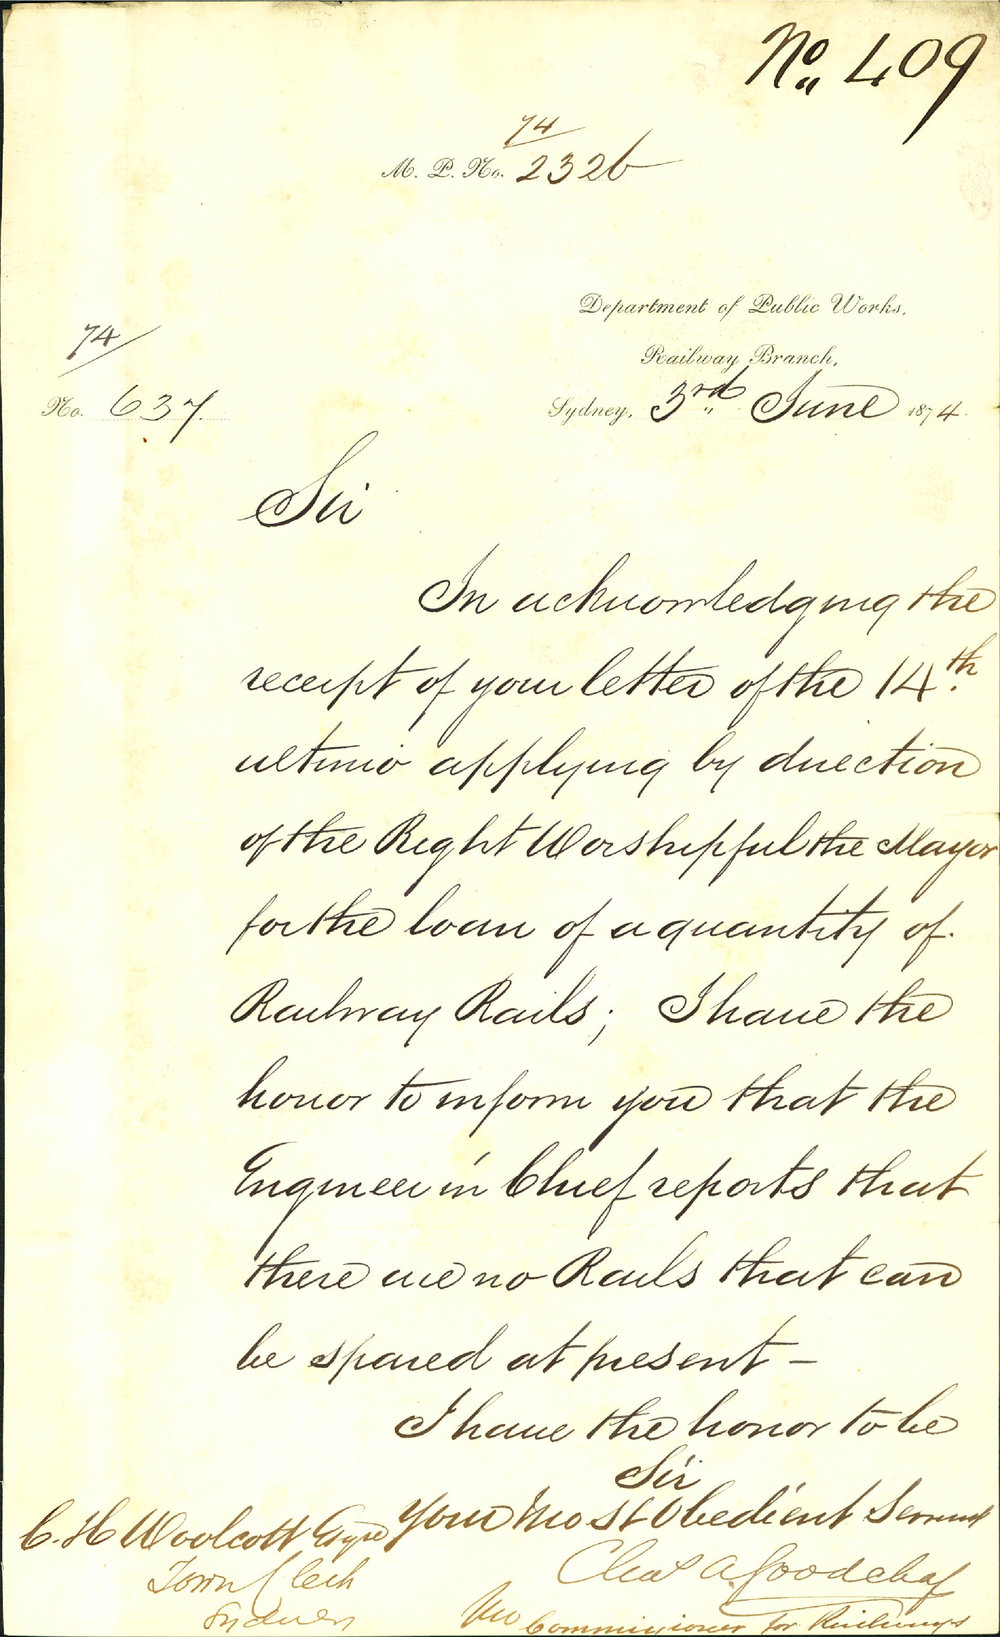 No. 409
74/
M. P. No. 2326
Department of Public Works,
Railway Branch,
74/
No. 637
Sydney, 3rd June 1874.
Sir
In acknowledging the
receipt of your letter of the 14th
ultimo applying by direction
of the Right Worshipful the Mayor
for the loan of a quantity of
Railway Rails; I have the
honor to inform you that the
Engineer in Chief reports that
there are no Rails that can
be spared at present –
I have the honor to be
Sir
Your Most Obedient Servant
C. H Woolcott Esqre
Town Clerk
Sydney
Chas A. Goodchap
Commissioner for Railways